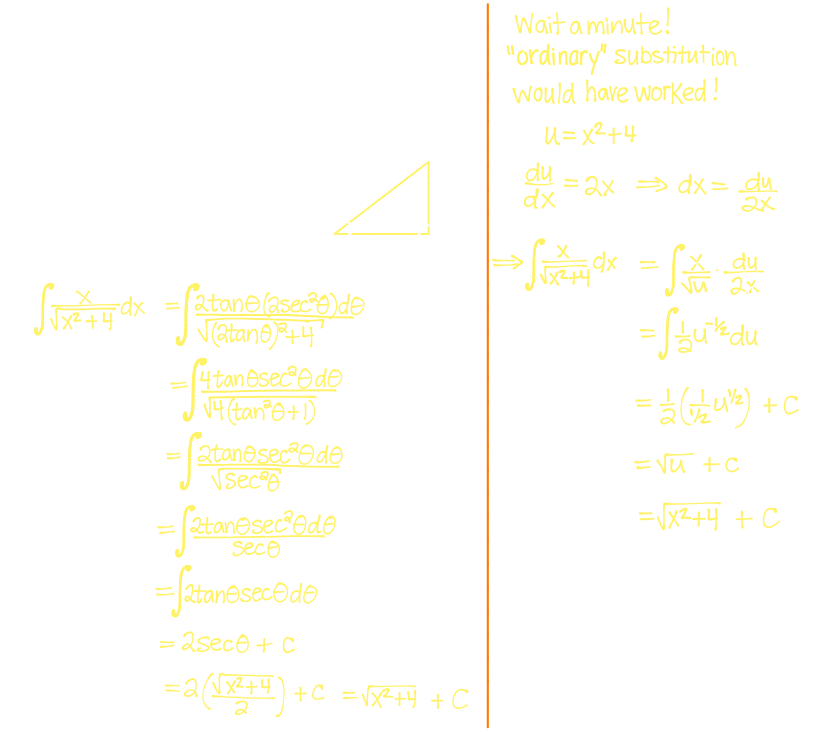 ∫ x/√(x²+4) dx = ∫ 2tanθ(2sec²θ)dθ/√((2tanθ)²+4)
= ∫ 4tanθsec²θdθ/√(4(tan²θ+1))
= ∫ 2tanθsec²θdθ/√(sec²θ)
= ∫ 2tanθsec²θdθ/secθ
= ∫ 2tanθsecθdθ
= 2secθ + c
= 2(√(x²+4)/2) + c = √(x²+4) + C
Wait a minute!
"ordinary" substitution
would have worked!
u = x²+4
du/dx = 2x ⇒ dx = du/2x
⇒ ∫ x/√(x²+4) dx = ∫ x/√u · du/2x
= ∫ 1/2 u^(-1/2) du
= 1/2 (1/(1/2) u^(1/2)) + C
= √u + C
= √(x²+4) + C